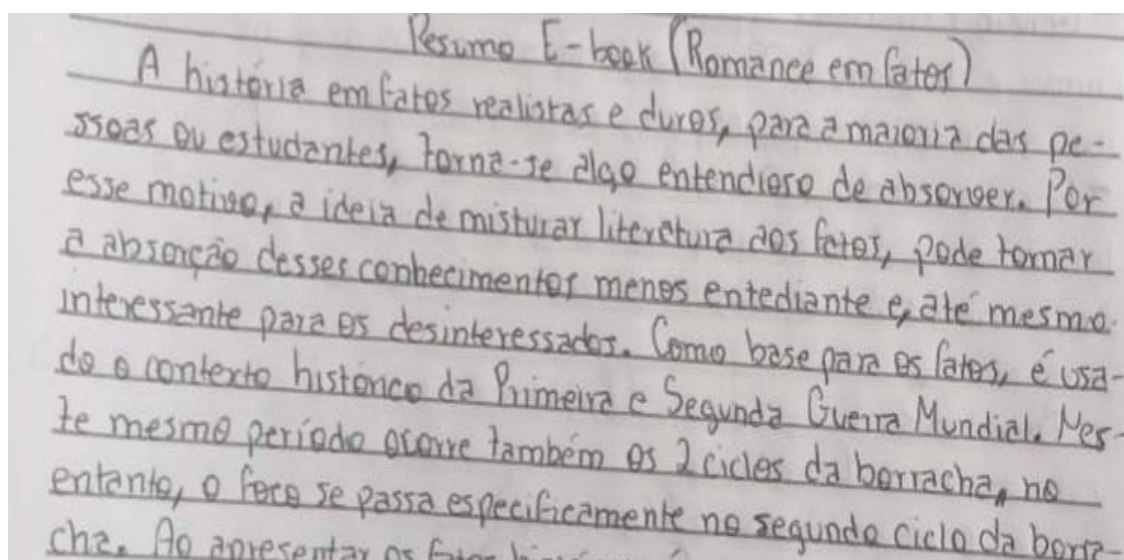 Resumo E-book (Romance em fatos)
A história em fatos realistas e duros, para a maioria das pe-
ssoas ou estudantes, torna-se algo entendioso de absorver. Por
esse motivo, a ideia de misturar literatura aos fatos, pode tornar
a absorção desses conhecimentos menos entediante e, até mesmo
interessante para os desinteressados. Como base para os fatos, é usa-
do o contexto histórico da Primeira e Segunda Guerra Mundial. Nes-
te mesmo período ocorre também os 2 ciclos da borracha, no
entanto, o foco se passa especificamente no segundo ciclo da borra-
cha. Ao apresentar os fatos